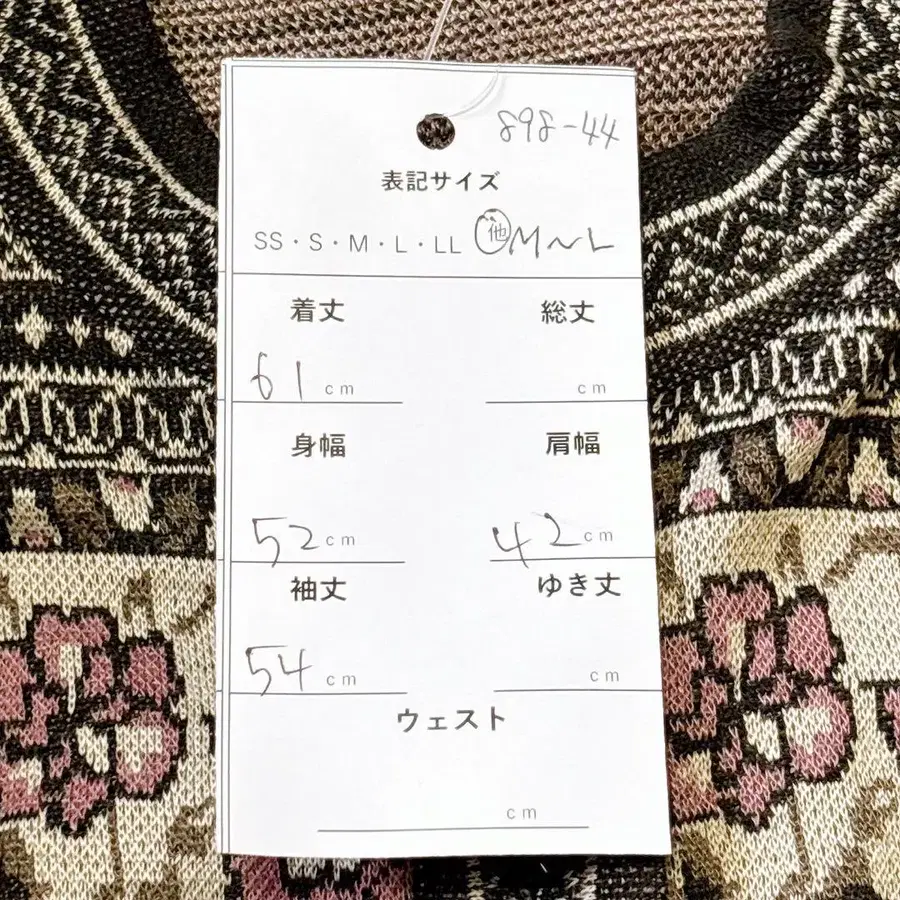 898-44
表記サイズ
SS・S・M・L・LL 他 M～L
着丈 総丈
61 cm cm
身幅 肩幅
52 cm 42 cm
袖丈 ゆき丈
54 cm cm
ウェスト
cm